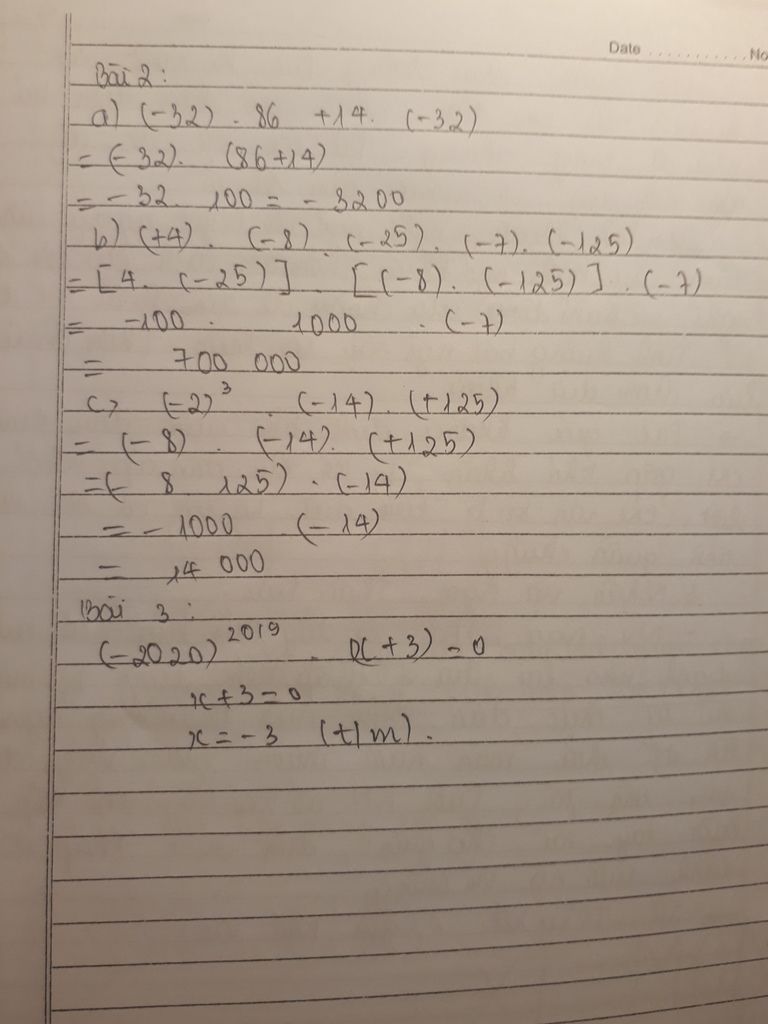 Date ............ No
Bài 2:
a) (-32) . 86 +14. (-32)
= (-32). (86+14)
= -32. 100 = -3200
b) (+4). (-8). (-25). (-7). (-125)
= [4. (-25)] . [(-8). (-125)] . (-7)
= -100 . 1000 . (-7)
= 700 000
c) (-2)³ . (-14). (+125)
= (-8) . (-14). (+125)
=(- 8 125) . (-14)
= -1000 (-14)
= 14 000
Bài 3:
(-2020)²⁰¹⁹ . (x+3) = 0
x+3=0
x=-3 (t/m).